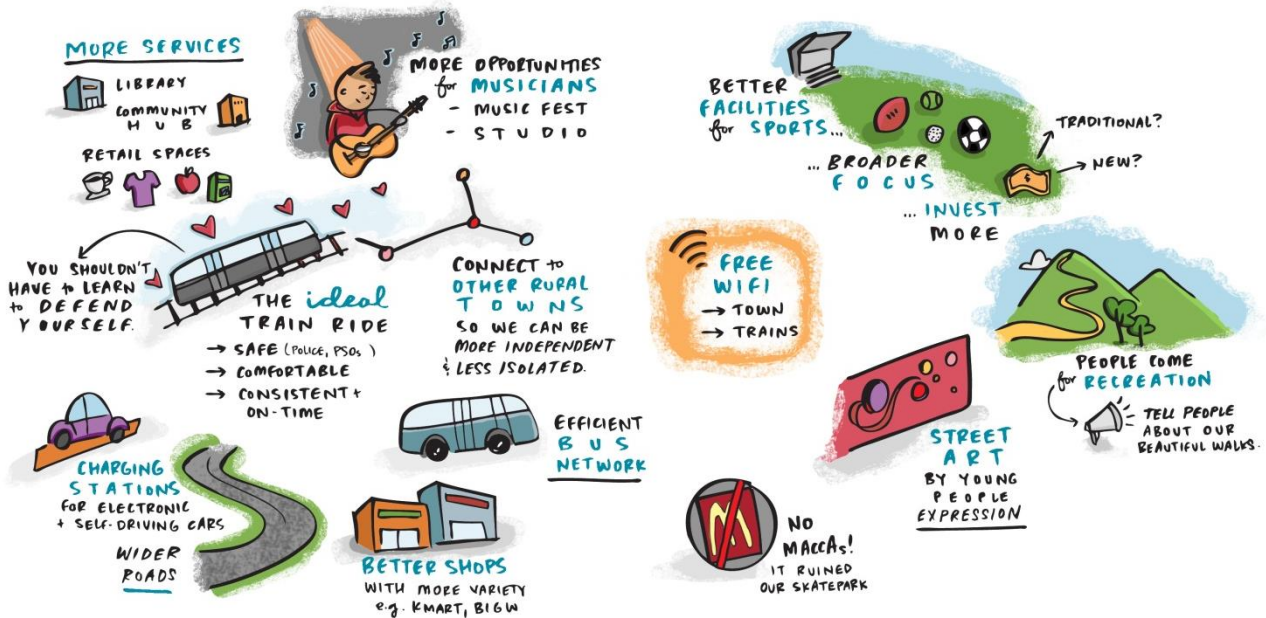 MORE SERVICES
LIBRARY
COMMUNITY
HUB
RETAIL SPACES
MORE OPPORTUNITIES
for MUSICIANS
- MUSIC FEST
- STUDIO
YOU SHOULDN'T
HAVE to LEARN
to DEFEND
YOURSELF.
THE ideal
TRAIN RIDE
→ SAFE (POLICE, PSOs)
→ COMFORTABLE
→ CONSISTENT +
ON-TIME
CONNECT to
OTHER RURAL
TOWNS
SO WE CAN BE
MORE INDEPENDENT
& LESS ISOLATED.
CHARGING
STATIONS
FOR ELECTRONIC
+ SELF-DRIVING CARS
WIDER
ROADS
EFFICIENT
BUS
NETWORK
BETTER SHOPS
WITH MORE VARIETY
e.g. KMART, BIGW
BETTER
FACILITIES
for SPORTS...
... BROADER
FOCUS
... INVEST
MORE
$
TRADITIONAL?
NEW?
FREE
WIFI
→ TOWN
→ TRAINS
PEOPLE COME
for RECREATION
TELL PEOPLE
ABOUT OUR
BEAUTIFUL WALKS.
STREET
ART
BY YOUNG
PEOPLE
EXPRESSION
M
NO
MACCAs!
IT RUINED
OUR SKATEPARK